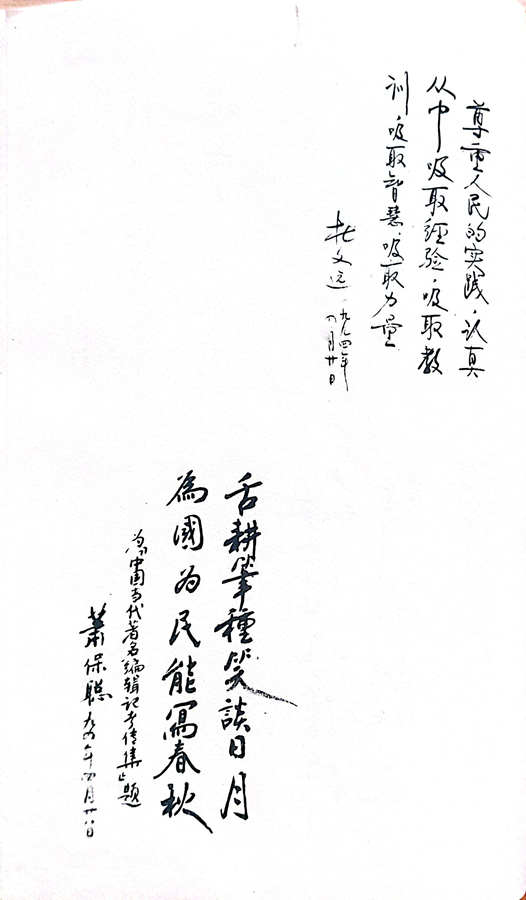 尊重人民的实践，认真
从中吸取经验，吸取教
训，吸取智慧，吸取力量
杜文远 一九九四年
月廿日
舌耕筆種笑談日月
為國为民能寫春秋
为《中国当代著名编辑记者传集》题
萧保聪 九四年四月廿八日